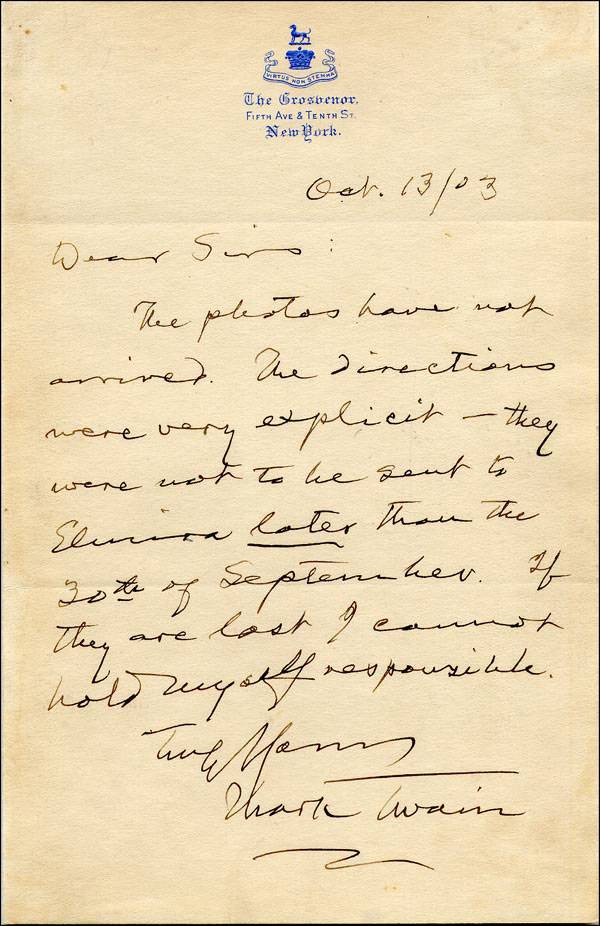 VIRTUS NON STEMMA
The Grosvenor,
FIFTH AVE & TENTH ST.
New York.
Oct. 13/03
Dear Sirs:
The photos have not
arrived. The directions
were very explicit — they
were not to be sent to
Elmira later than the
30th of September. If
they are lost I cannot
hold myself responsible.
Truly Yours
Mark Twain